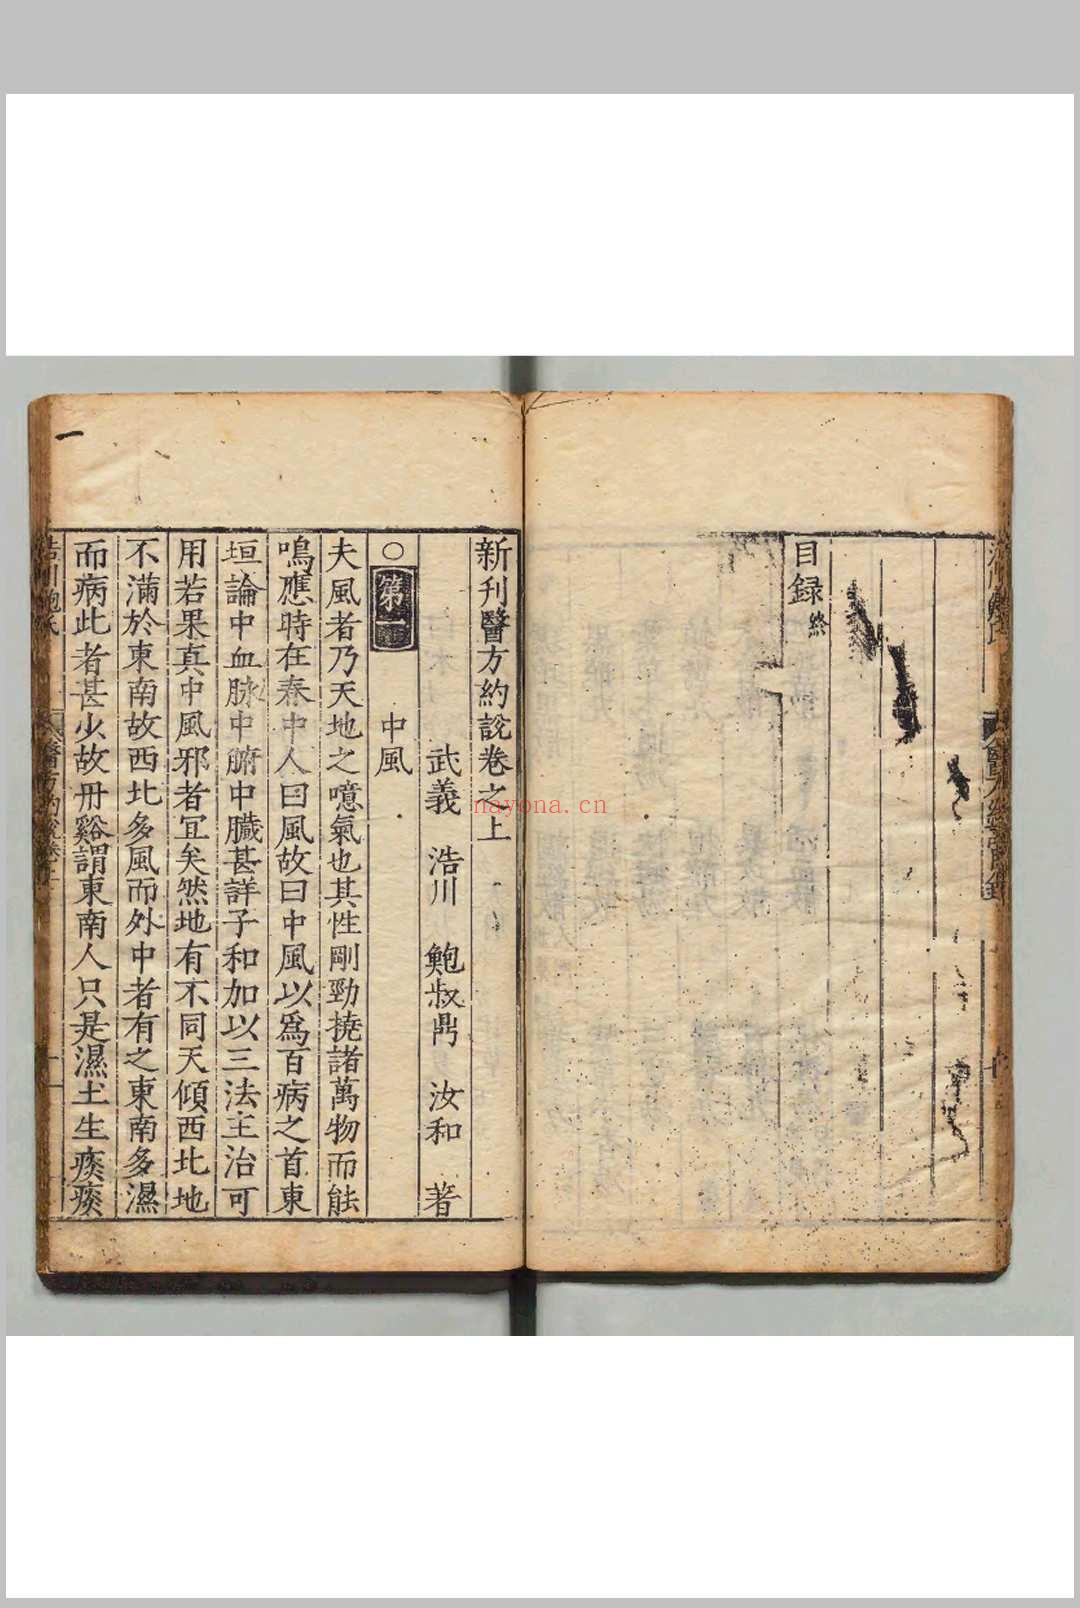 目録終
新刊醫方約說卷之上
武義 浩川 鮑叔鼎 汝和 著
○第一 中風
夫風者乃天地之噫氣也其性剛勁撓諸萬物而能
鳴應時在春中人曰風故曰中風以爲百病之首東
垣論中血脉中腑中臟甚詳子和加以三法主治可
用若果真中風邪者宜矣然地有不同天傾西北地
不滿於東南故西北多風而外中者有之東南多濕
而病此者甚少故丹谿謂東南人只是濕土生痰痰
一
nayona.cn